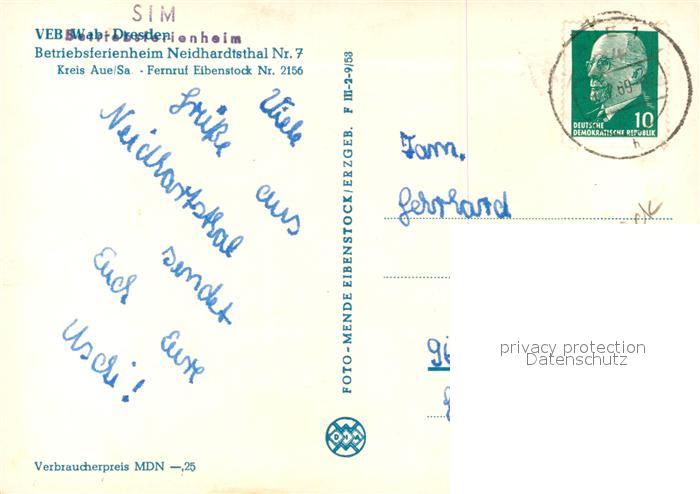 SIM
Betriebsferienheim
VEB Wab-Dresden
Betriebsferienheim Neidhardtsthal Nr. 7
Kreis Aue/Sa. - Fernruf Eibenstock Nr. 2156
Viele
Grüße aus
Neidhartsthal
sendet
Euch Eure
Uschi!
Verbraucherpreis MDN —,25
FOTO-MENDE EIBENSTOCK/ERZGEB. F III-2-9/58
DHA
DEUTSCHE
DEMOKRATISCHE REPUBLIK
10
Fam.
Gerhard
privacy protection
Datenschutz